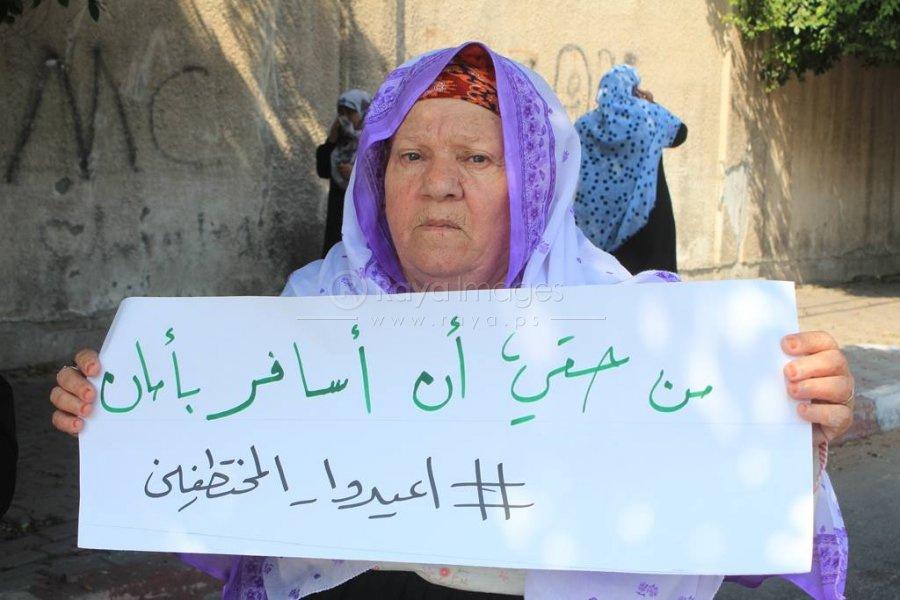 MC
Raya Images
www.raya.ps
من حقي أن أسافر بأمان
#اعيدوا_المختطفين